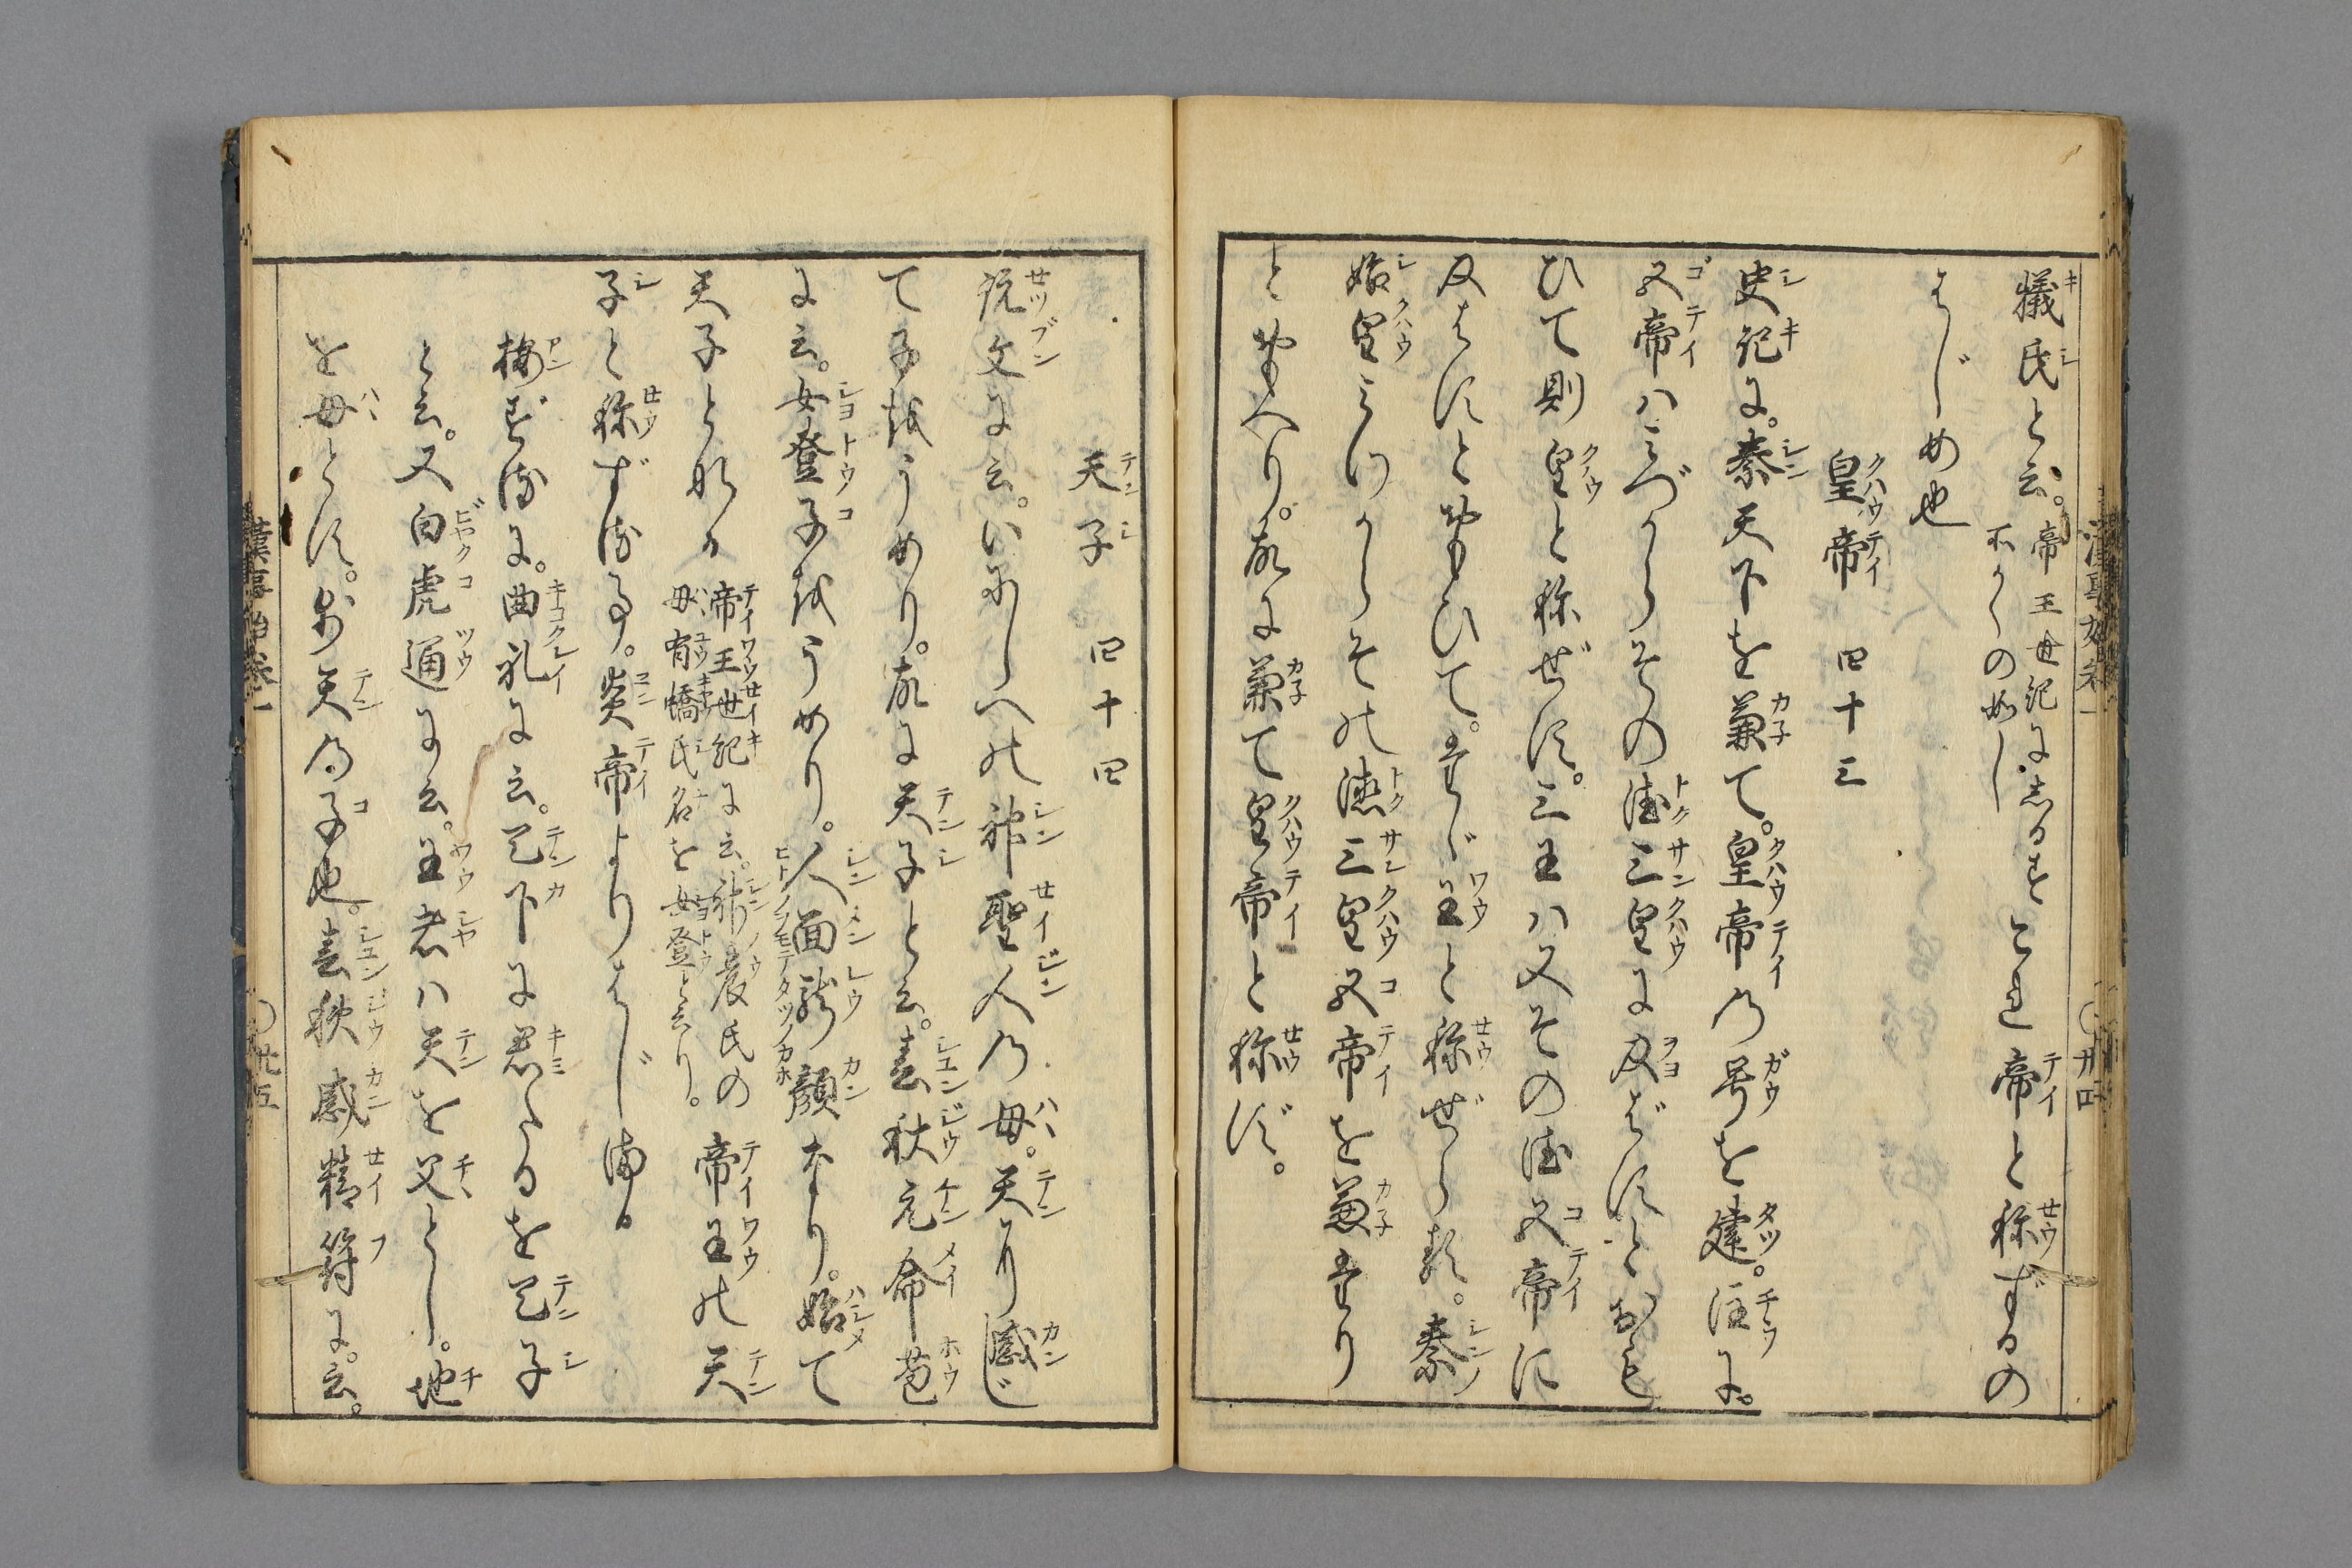 犠氏と云。帝王世紀にしるす
不かくの如し
これ帝と称ずるの
はじめ也
皇帝 四十三
史記に。秦天下を兼て。皇帝の号を建。注に。
五帝ハみづからその徳三皇に及ばずとおもひ
ひて則皇と称ぜず。三王ハ又その徳五帝に
及はずとおもひて。たゞ王と称ぜらる。秦
始皇みづからその徳三皇五帝を兼たり
とおもへり。故に兼て皇帝と称ず。
天子 四十四
説文に云。いにしへの神聖人の母。天に感じ
て子をうめり。故に天子と云。春秋元命苞
に云。女登子をうめり。人面龍顔なり。始て
天子となる
帝王世紀に云。神農氏の
母有蟜氏名を女登と云り。
帝王の天
子と称ずる事。炎帝よりはじまる
按ずるに。曲礼に云。天下に君たるを天子
と云。又白虎通に云。王者ハ天を父とし。地
を母とす。お天の子也。春秋感精符に云。
漢事始巻一 ○廿四
漢事始巻一 ○廿五